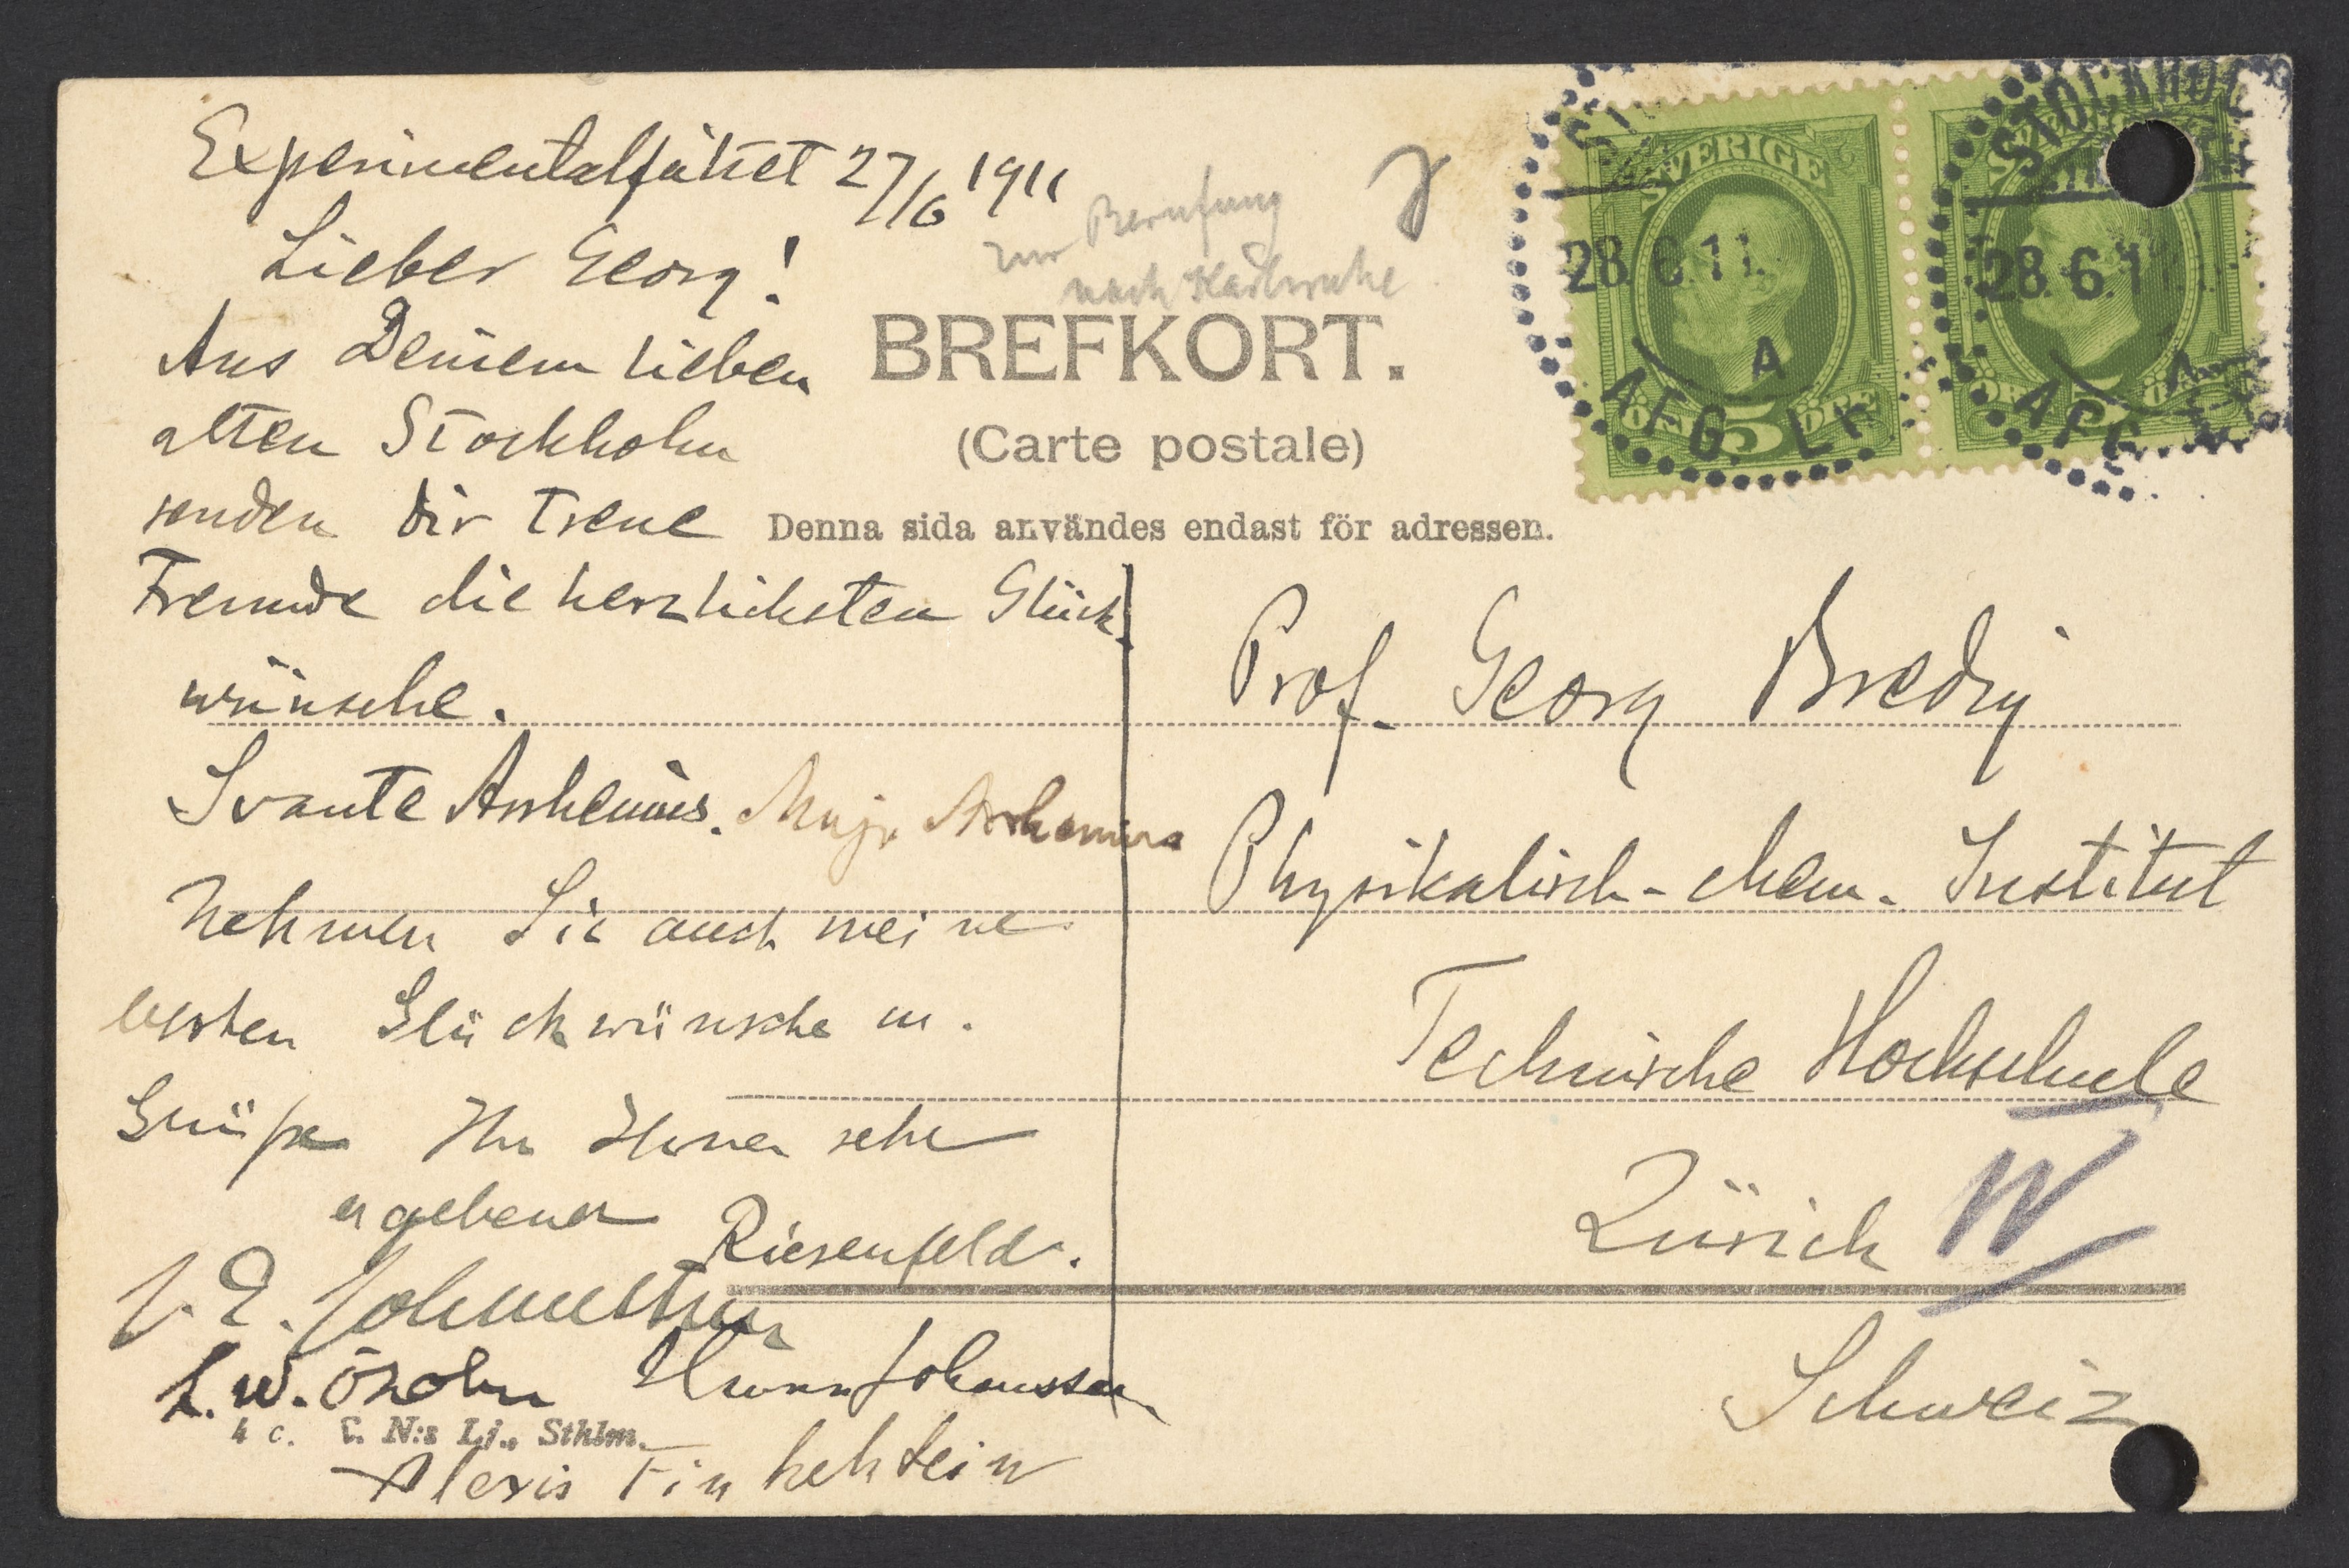 Experimentalfältet 27/6 1911
Lieber Georg!
Aus Deinem lieben
alten Stockholm
senden dir treue
Freunde die herzlichsten Glück-
wünsche.
Svante Arrhenius. Maja Arrhenius
Nehmen Sie auch meine
besten Glückwünsche u.
Grüße Ihr Ihnen sehr
ergebener
Riesenfeld.
L. W. Öholm Johansson
4 c. N:s Lj., Sthlm.
Alexis Finkelstein
zur Berufung
nach Karlsruhe
BREFKORT.
(Carte postale)
Denna sida användes endast för adressen.
SVERIGE
STOCKHOL
28.6.11.
28.6.11.
A
A
AFG. LR
5 ÖRE
Prof. Georg Bredig
Physikalisch-chem. Institut
Technische Hochschule
Zürich IV
Schweiz